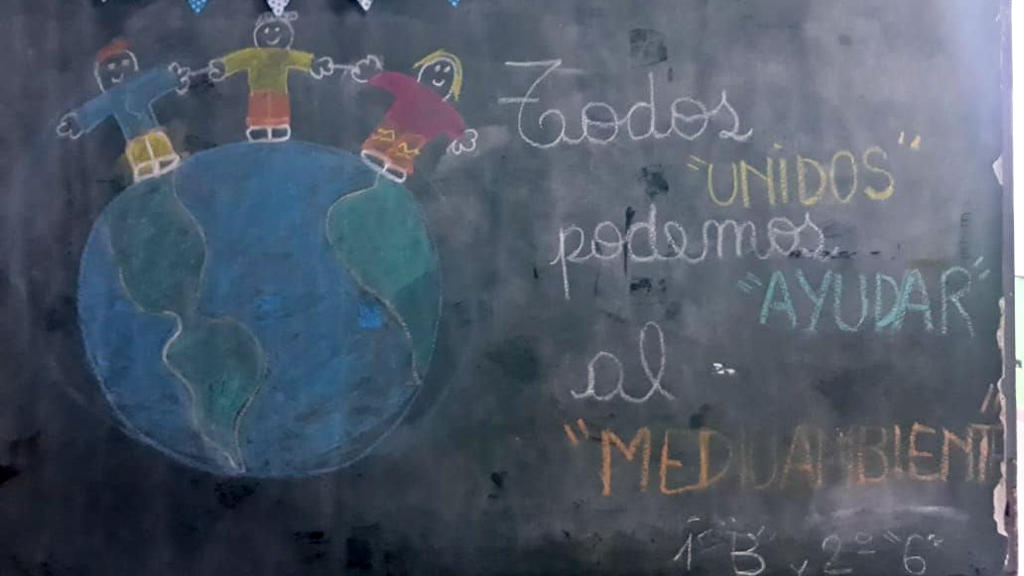 Todos
"UNIDOS"
podemos
"AYUDAR"
al
"MEDIUAMBIENTE"
1º "B" y 2º "6"